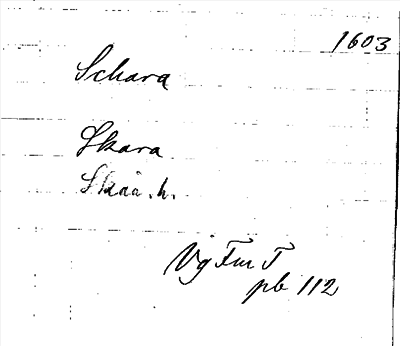 1603
Schara
Skara
Skaa. h.
Vg Fm T
pb 112